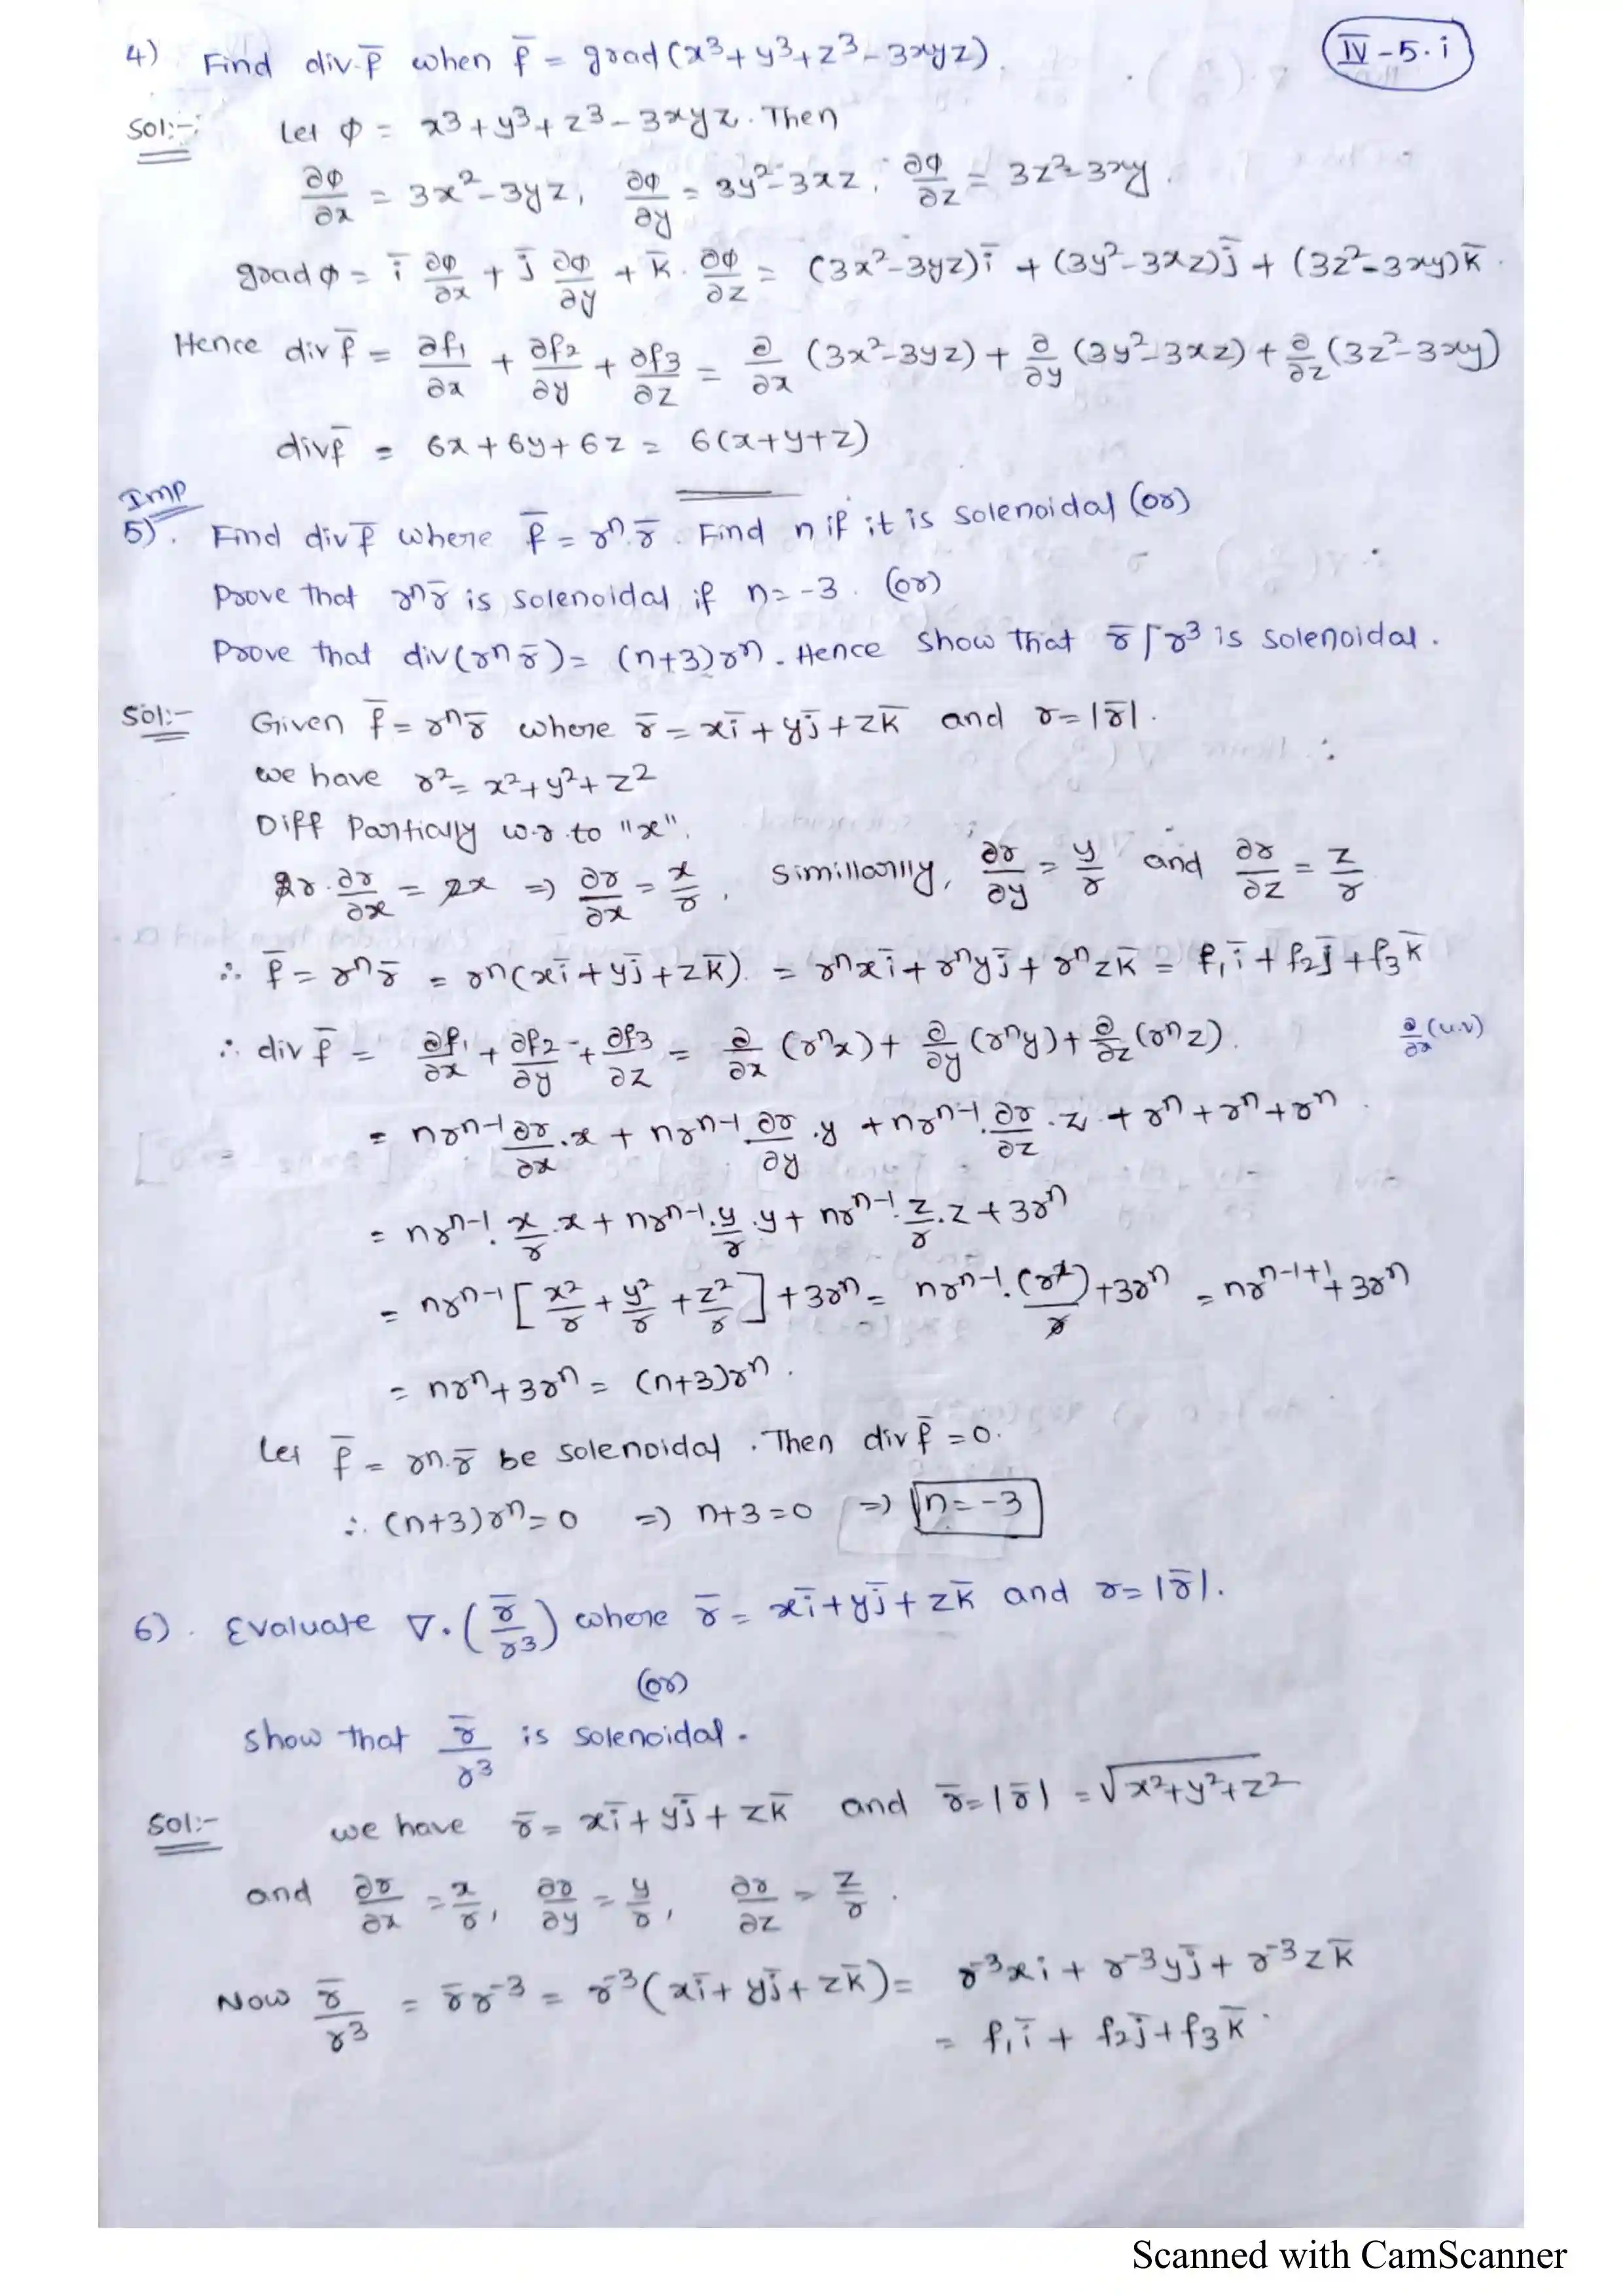 IV-5.i
4) Find div f̄ when f̄ = grad (x³+y³+z³-3xyz).
Sol:- Let φ = x³+y³+z³-3xyz. Then
∂φ/∂x = 3x²-3yz, ∂φ/∂y = 3y²-3xz, ∂φ/∂z = 3z²-3xy.
grad φ = ī ∂φ/∂x + j̄ ∂φ/∂y + k̄ . ∂φ/∂z = (3x²-3yz)ī + (3y²-3xz)j̄ + (3z²-3xy)k̄.
Hence div f̄ = ∂f₁/∂x + ∂f₂/∂y + ∂f₃/∂z = ∂/∂x (3x²-3yz) + ∂/∂y (3y²-3xz) + ∂/∂z (3z²-3xy)
div f̄ = 6x+6y+6z = 6(x+y+z)
Imp
5). Find div f̄ where f̄ = rⁿ.r̄. Find n if it is solenoidal (or)
Prove that rⁿr̄ is solenoidal if n=-3. (or)
Prove that div(rⁿr̄) = (n+3)rⁿ. Hence show that r̄/r³ is solenoidal.
Sol:- Given f̄ = rⁿr̄ where r̄ = xī + yj̄ + zk̄ and r=|r̄|.
we have r² = x²+y²+z²
Diff Partially w.r.to "x".
2r.∂r/∂x = 2x ⇒ ∂r/∂x = x/r, Simillarlly, ∂r/∂y = y/r and ∂r/∂z = z/r
∴ f̄ = rⁿr̄ = rⁿ(xī+yj̄+zk̄). = rⁿxī + rⁿyj̄ + rⁿzk̄ = f₁ī + f₂j̄ + f₃k̄
∴ div f̄ = ∂f₁/∂x + ∂f₂/∂y + ∂f₃/∂z = ∂/∂x (rⁿx) + ∂/∂y (rⁿy) + ∂/∂z (rⁿz). ∂/∂x (u.v)
= nrⁿ⁻¹ ∂r/∂x .x + nrⁿ⁻¹.∂r/∂y .y + nrⁿ⁻¹.∂r/∂z .z + rⁿ + rⁿ + rⁿ.
= nrⁿ⁻¹. x/r .x + nrⁿ⁻¹. y/r .y + nrⁿ⁻¹. z/r .z + 3rⁿ
= nrⁿ⁻¹ [x²/r + y²/r + z²/r] + 3rⁿ = nrⁿ⁻¹. (r²)/r + 3rⁿ = nrⁿ⁻¹⁺¹ + 3rⁿ
= nrⁿ + 3rⁿ = (n+3)rⁿ.
Let f̄ = rⁿ.r̄ be solenoidal. Then div f̄ = 0.
∴ (n+3)rⁿ = 0 ⇒ n+3=0 ⇒ n=-3
6). Evaluate ∇.(r̄/r³) where r̄ = xī+yj̄+zk̄ and r=|r̄|.
(or)
Show that r̄/r³ is solenoidal.
Sol:- we have r̄ = xī+yj̄+zk̄ and r̄=|r̄| = √x²+y²+z²
and ∂r/∂x = x/r, ∂r/∂y = y/r, ∂r/∂z = z/r.
Now r̄/r³ = r̄r⁻³ = r⁻³(xī+yj̄+zk̄) = r⁻³xi + r⁻³yj̄ + r⁻³zk̄
= f₁ī + f₂j̄ + f₃k̄.
Scanned with CamScanner